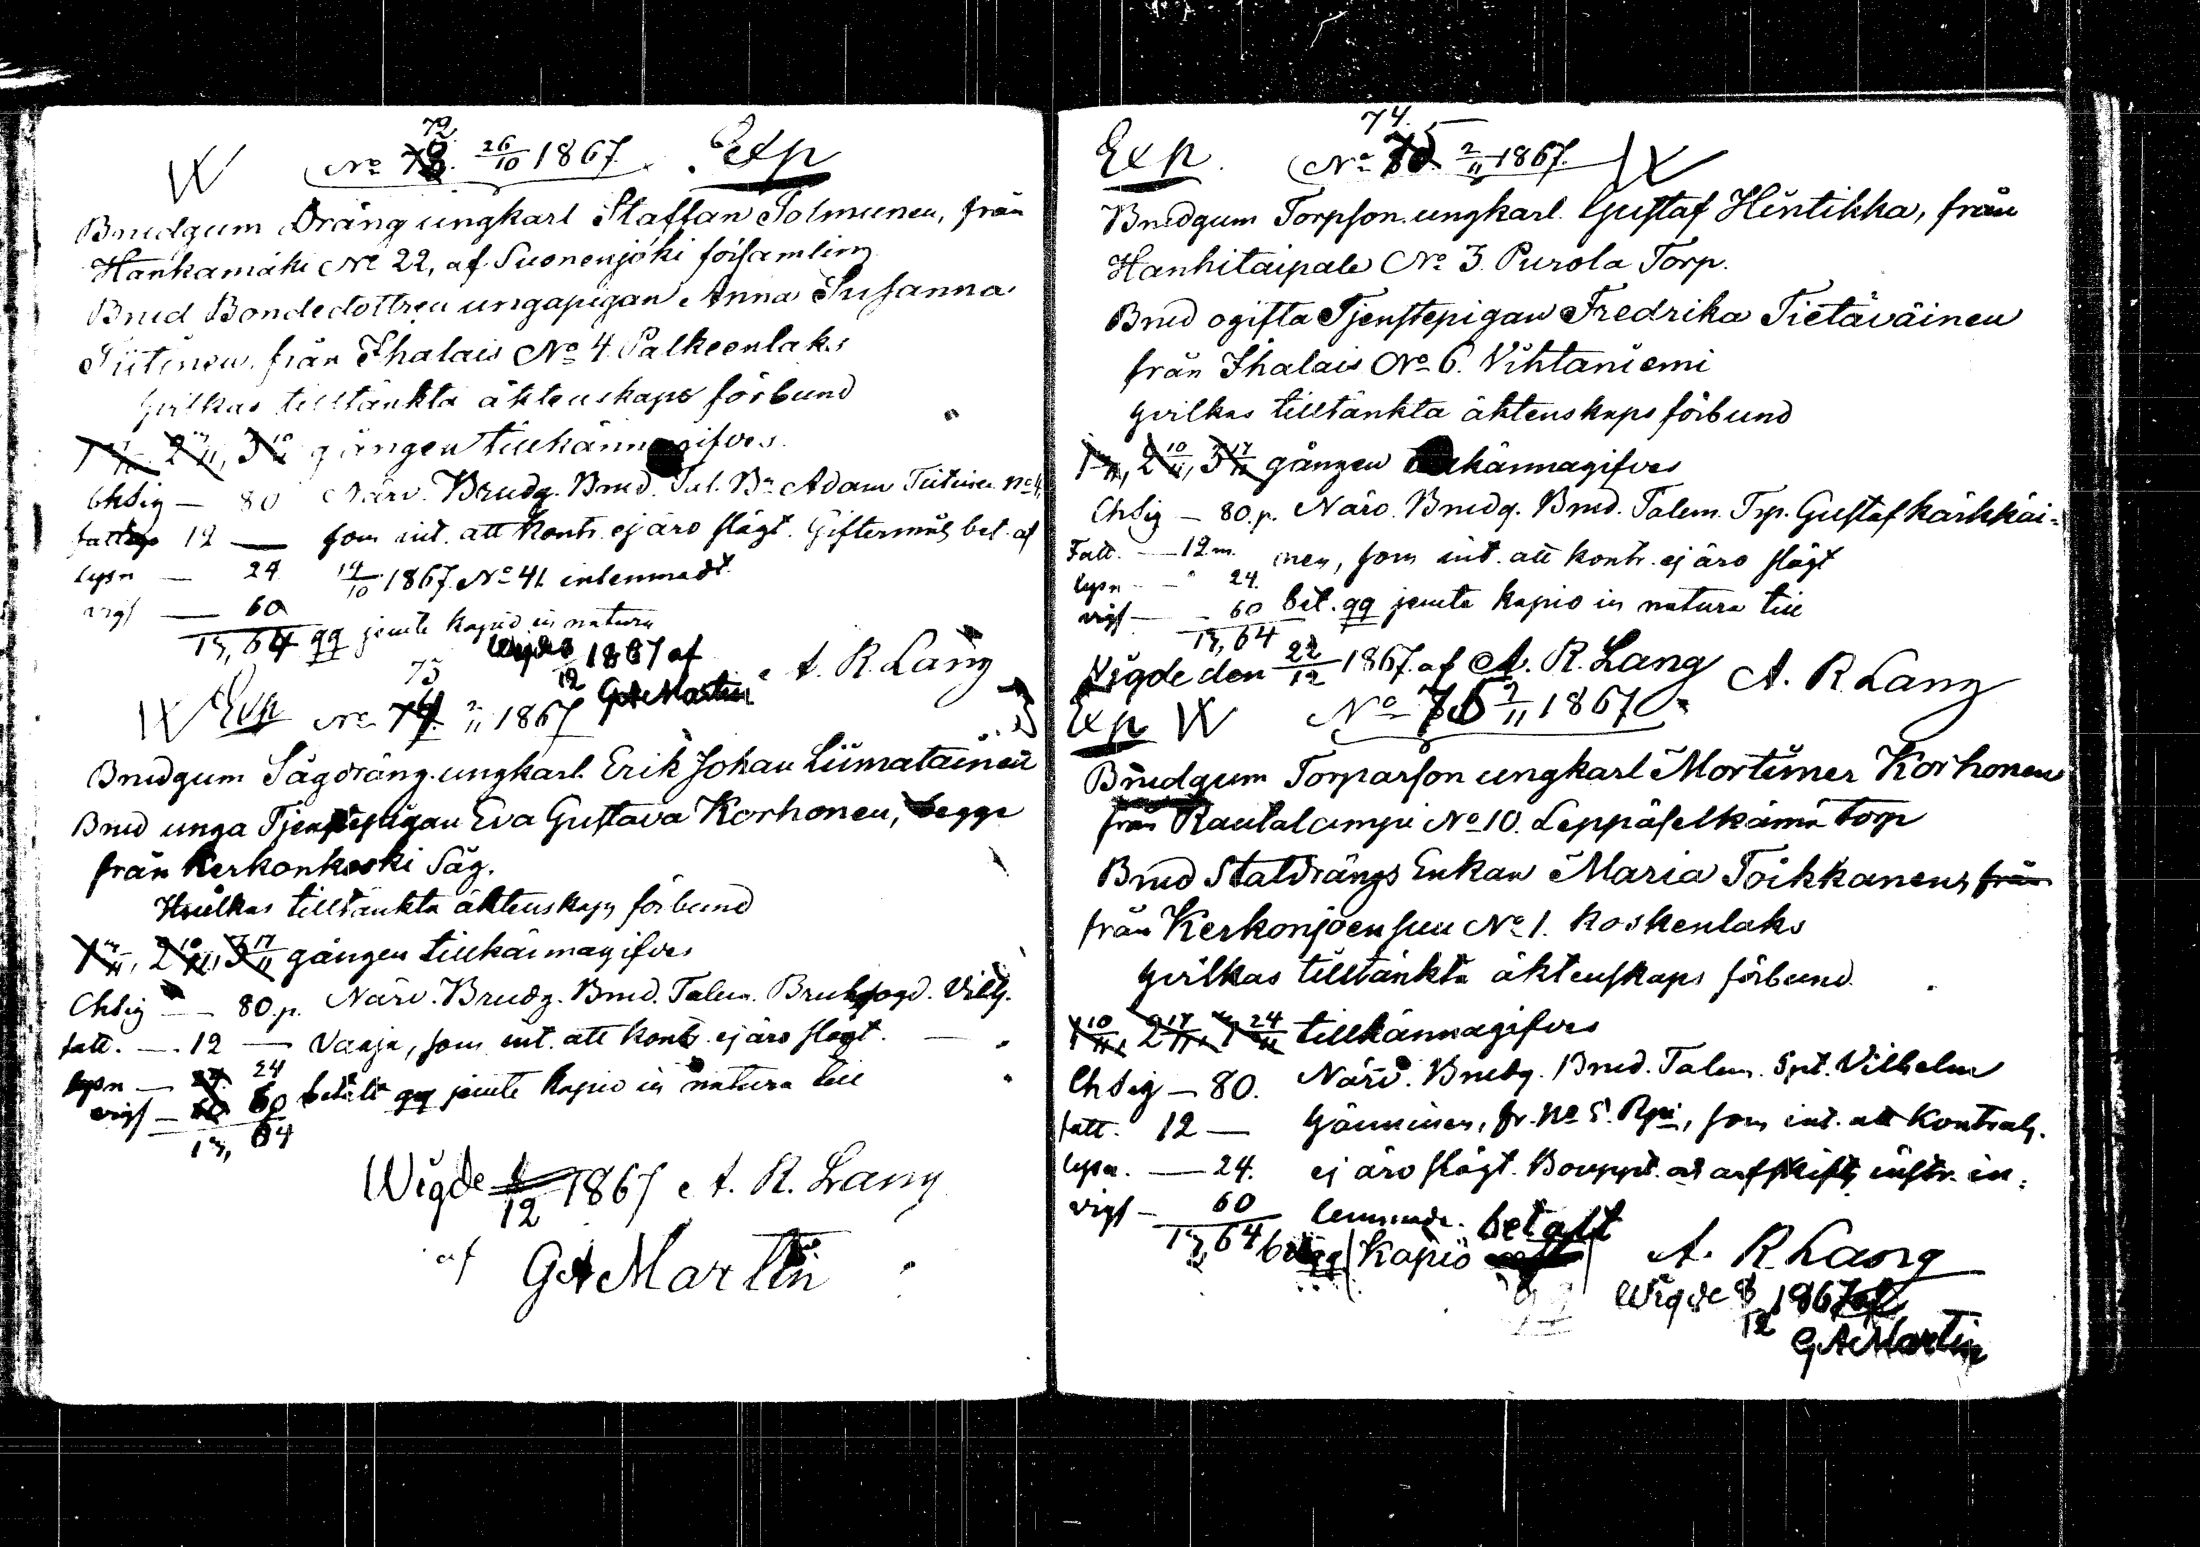 72
W No 73. 26/10 1867. Exp
Brudgum Dräng ungkarl Staffan Tolmunen, från
Hankamäki No 22, af Suonenjöki församling
Brud Bondedottren ungapigan Anna Susanna
Tiitinen, från Ihalais No 4 Palkeenlaks
hvilkas tilltänkta äktenskaps förbund
1 3/11, 2 /11, 3 /11 gången tillkännagifves.
Chsig — 80 Närv. Brudg. Brud. Tal. Bn Adam Tiitinen No 4,
fattig 12 — som int. att kontr. ej äro slägt. Giftermåls bet. af
lysn — 24 14/10 1867. No 41 inlemnadt
vigs — 60
13,64 qq jemte kapio in natura
Wigde /12 1867 af
GA Martin
A. R. Lang
73
W Exp No 74. 2/11 1867
Brudgum Sågdräng ungkarl Erik Johan Liimatainen
Brud unga Tjenstepigan Eva Gustava Korhonen, begge
från Kerkonkoski Såg.
Hvilkas tilltänkta äktenskaps förbund
1 3/11, 2 10/11, 3 17/11 gången tillkännagifves
Chsig — 80.p. Närv. Brudg. Brud. Talem. Brukfogd. Vilh.
fatt. — 12 — Vaaja, som int. att kontr. ej äro slägt.
lysn — 24 24
vigs — 60 60 betalt qq jemte kapio in natura till
13, 64
Wigde /12 1867 A. R. Lang
af GA Martin
74.
Exp. No 75 2/11 1867. W
Brudgum Torpson ungkarl. Gustaf Hintikka, från
Hanhitaipale No 3. Purola Torp.
Brud ogifta Tjenstepigan Fredrika Tietäväinen
från Ihalais No 6. Vihtaniemi
hvilkas tilltänkta äktenskaps förbund
1 3/11, 2 10/11, 3 17/11 gången tillkännagifves
Chsig — 80.p. Närv. Brudg. Brud. Talem. Trp. Gustaf Kärkkäi=
Fatt. — 12 m. nen, som int. att kontr. ej äro slägt
lysn — 24.
vigs — 60 bet. qq jemte kapio in natura till
13,64
Vigde den 22/12 1867. af A. R. Lang A. R. Lang
Exp W No 75 2/11 1867
Brudgum Torparson ungkarl Mortimer Korhonen
från Rautalampi No 10. Leppäselkämä torp
Brud Statdrängs Enkan Maria Toikkanen, från
från Kerkonjoensuu No 1. Koskenlaks
hvilkas tilltänkta äktenskaps förbund.
1 10/11, 2 17/11, 3 24/11 tillkännagifves
Chsig — 80. Närv. Brudg. Brud. Talem. Spt. Vilhelm
fatt. 12 — Gänninen, fr. No 5. Rpi, som int. att kontrah.
lysn. — 24. ej äro slägt. Bouppt. arfskifts instr. in=
vigs — 60 lemnade. betalt
13,64 bet qq Kapio
A. R. Lang
Wigde 8/12 1867 af
GA Martin